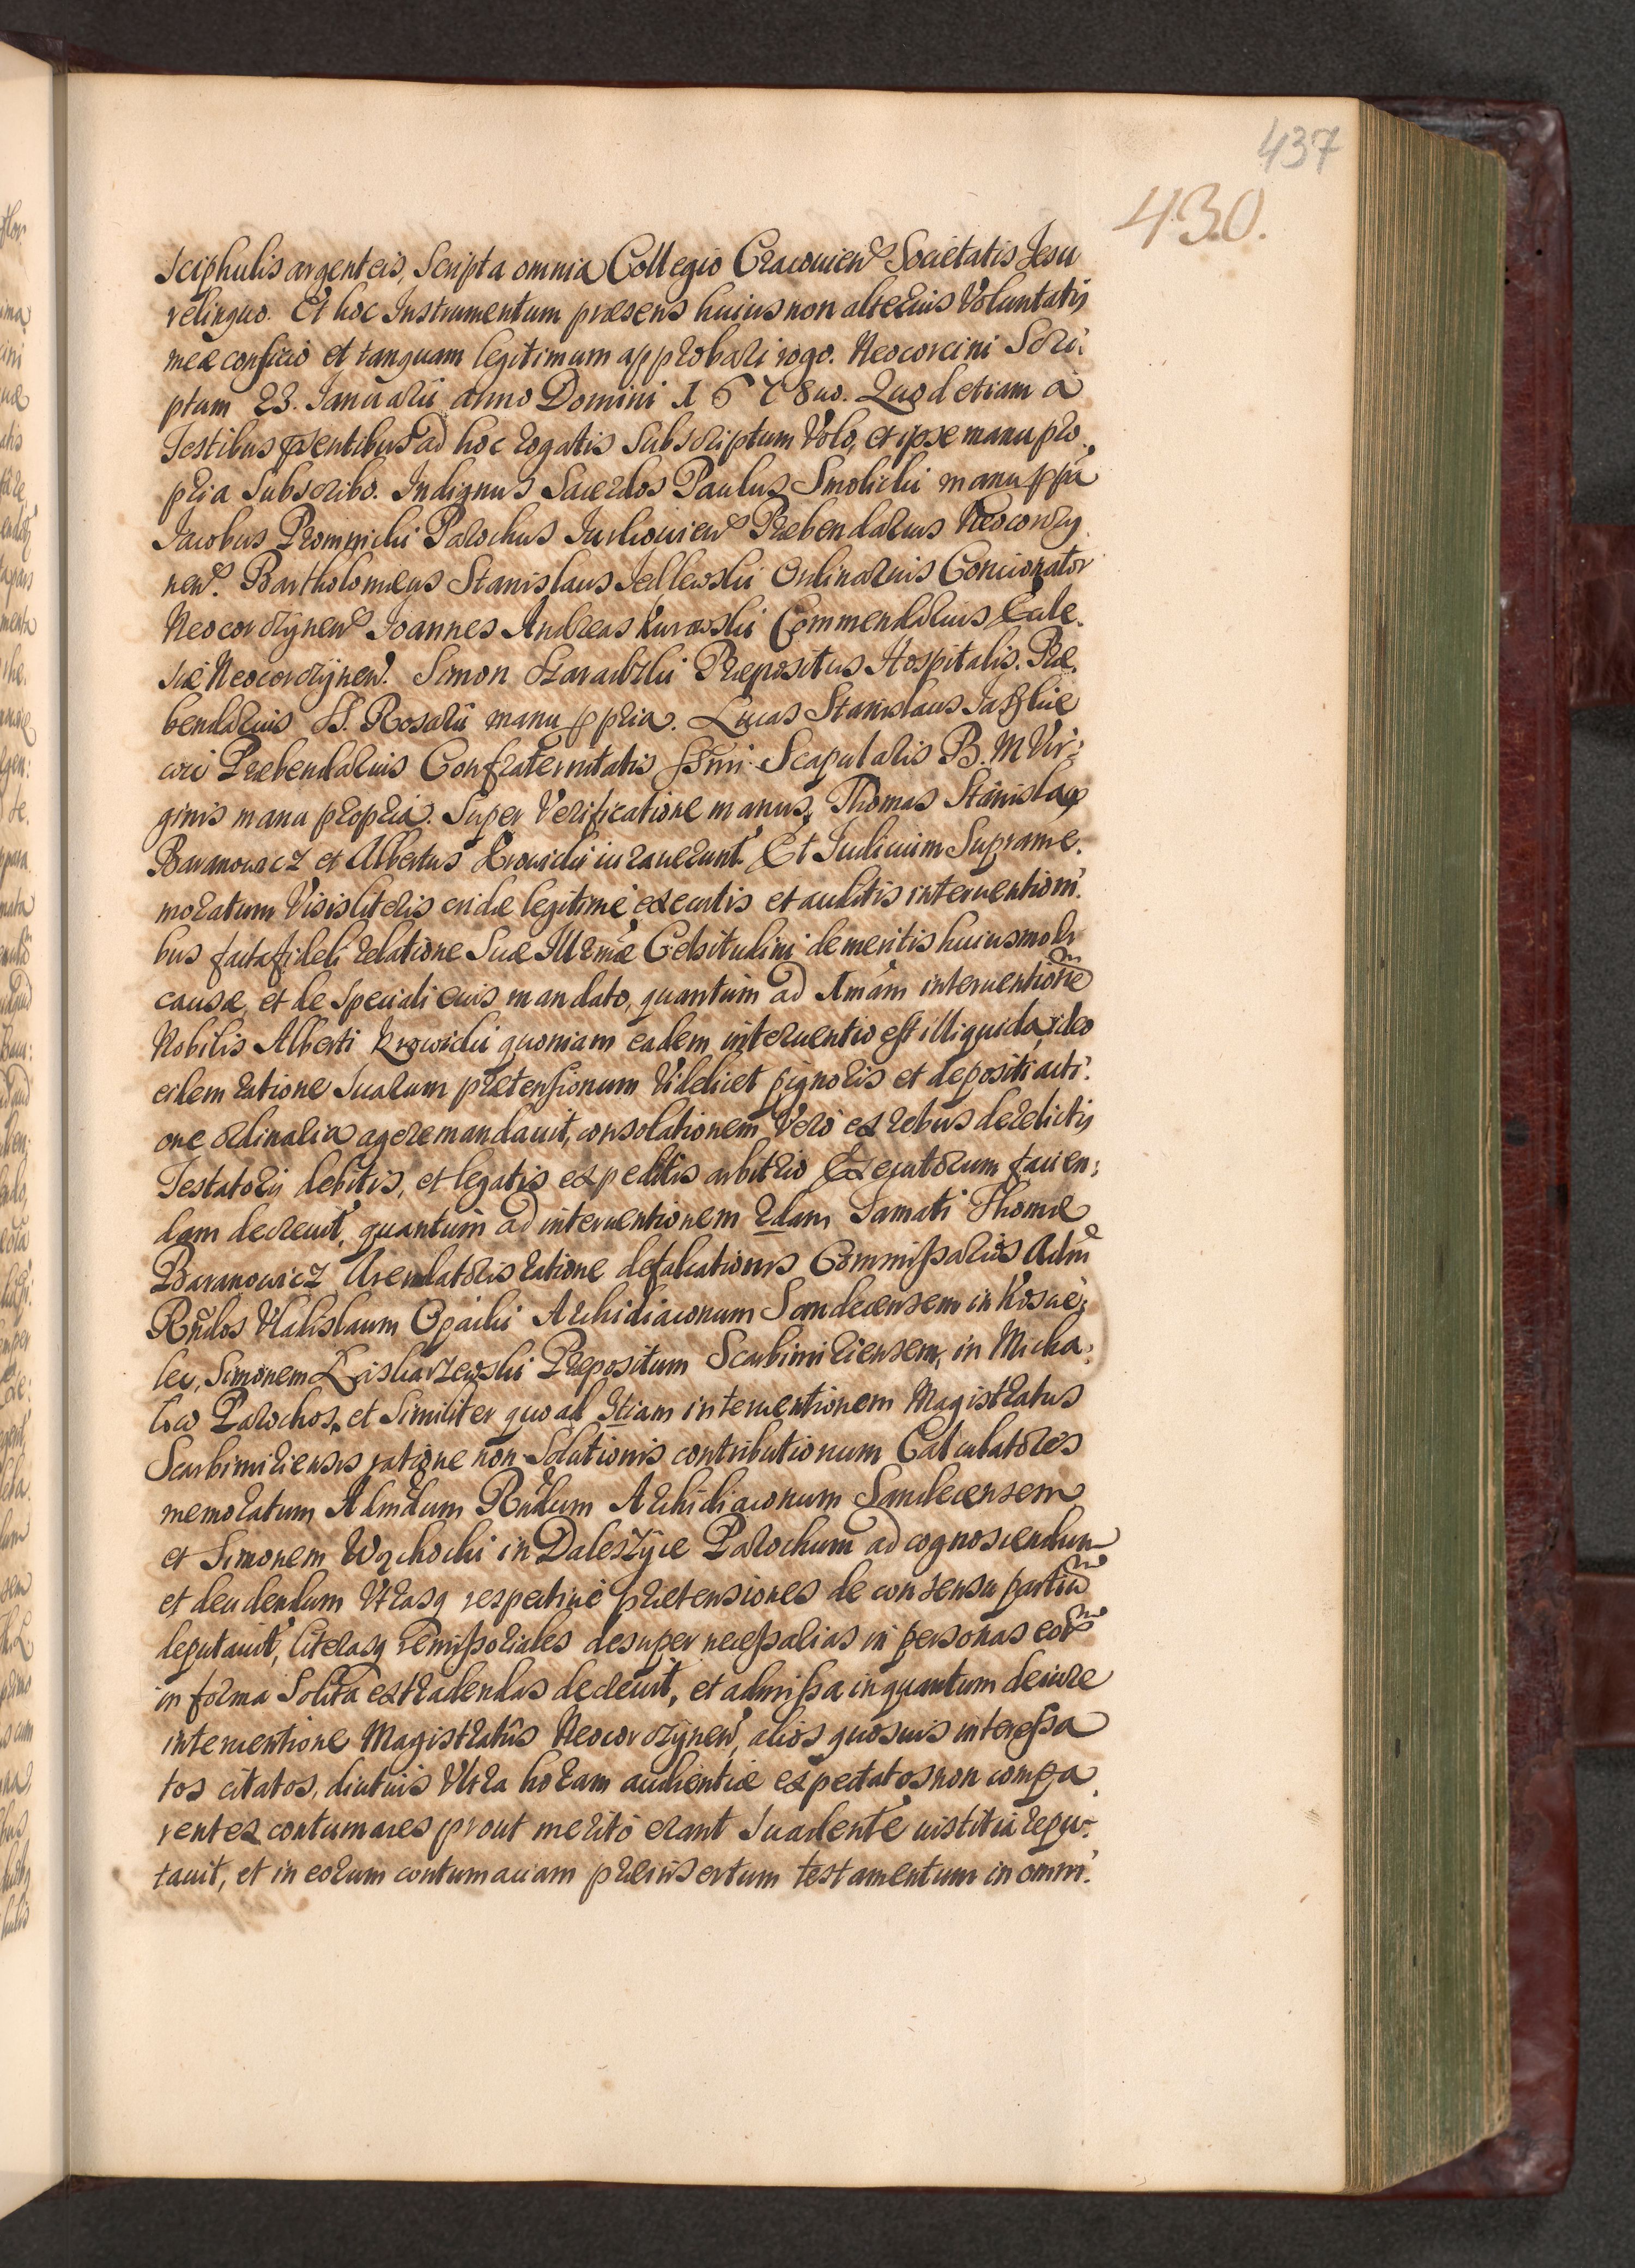 437
430.
Sciphulis argenteis, Scripta omnia Collegio Cracouien Societatis Jesu
relinquo. Et hoc Instrumentum præsens huius non alterius Voluntatis
meæ conficio et tanquam legitimum approbari rogo. Neocorcini Scri:
ptum 23. Januarii anno Domini 1678uo. Quod etiam à
Testibus pñtentibus ad hoc rogatis Subscriptum Volo, et ipse manu pro.
pria Subscribo. Indignus Sacerdos Paulus Smolicki manu ppa
Jacobus Promnicki Parochus Præbendarius Neocorczy
nen. Bartholomeus Stanislaus Jedlewski Ordinarius Concionator
Neocorczÿnen Joannes Andreas Kurowski Commendarius Eccle.
siæ Neocorczÿnen. Simon Præpositus Hospitalis. Præ.
bendarius SS. Rosarii manu ppria. Lucas Stanislaus Jaszkie
wic Præbendarius Confraternitatis SSmi Scapularis B. M Vir:
ginis manu propria. Super Verificatione manus, Thomas Stanislaus
Baranowicz et Albertus Krowicki iurauerunt. Et Judicium Suprame.
moratum Visis literis eidē legitimè executis et auditis interuentioni:
bus facta fideli relatione Suæ Illrmæ Celsitudini de meritis huiusmodi
causæ, et de speciali eius mandato, quantum ad Imam interuentione
Nobilis Alberti Krowicki quoniam eadem interuentio est illiquida, ideo
eidem ratione suarum prætensionum Videlicet pignoris et depositi acti:
one ordinaria agere mandauit, consolationem Verò ex rebus derelictis
Testatoris debitis, et legatis expeditis arbitrio Executorum facien:
dam decreuit, quantum ad interuentionem 2dam Famati Thomæ
Baranowicz Arendatoris ratione defalcationis Commissarios Adm
Rñdos Vladislaum Opacki Archidiaconum Sandecensem in Kosice:
lec, Simonem Præpositum Scarbimiriensem, in Micha:
low Parochos, et Similiter quo ad 3tiam interuentionem Magistratus
Scarbimiriensis ratione non Solutionis contributionum Calculatores
memoratum Admdum Rñdum Archidiaconum Sandecensem
et Simonem Wąchocki in Daleszÿce Parochum ad cognoscendum
et decidendum Vtrasq respectiuè prætensiones de consensu partiū
deputauit, literasq remissoriales desuper necessarias in personas eoꝝ
in forma Solita extradendas decreuit, et admissa inquantum de iure
interuentione Magistratûs Neocorczÿnen, alios quosuis interessa
tos citatos, diutius Vltra horam audientiæ expectatos non compa.
rentes contumaces prout meritò erant Suadente iustitia repu.
tauit, et in eorum contumaciam præinsertum testamentum in omni: